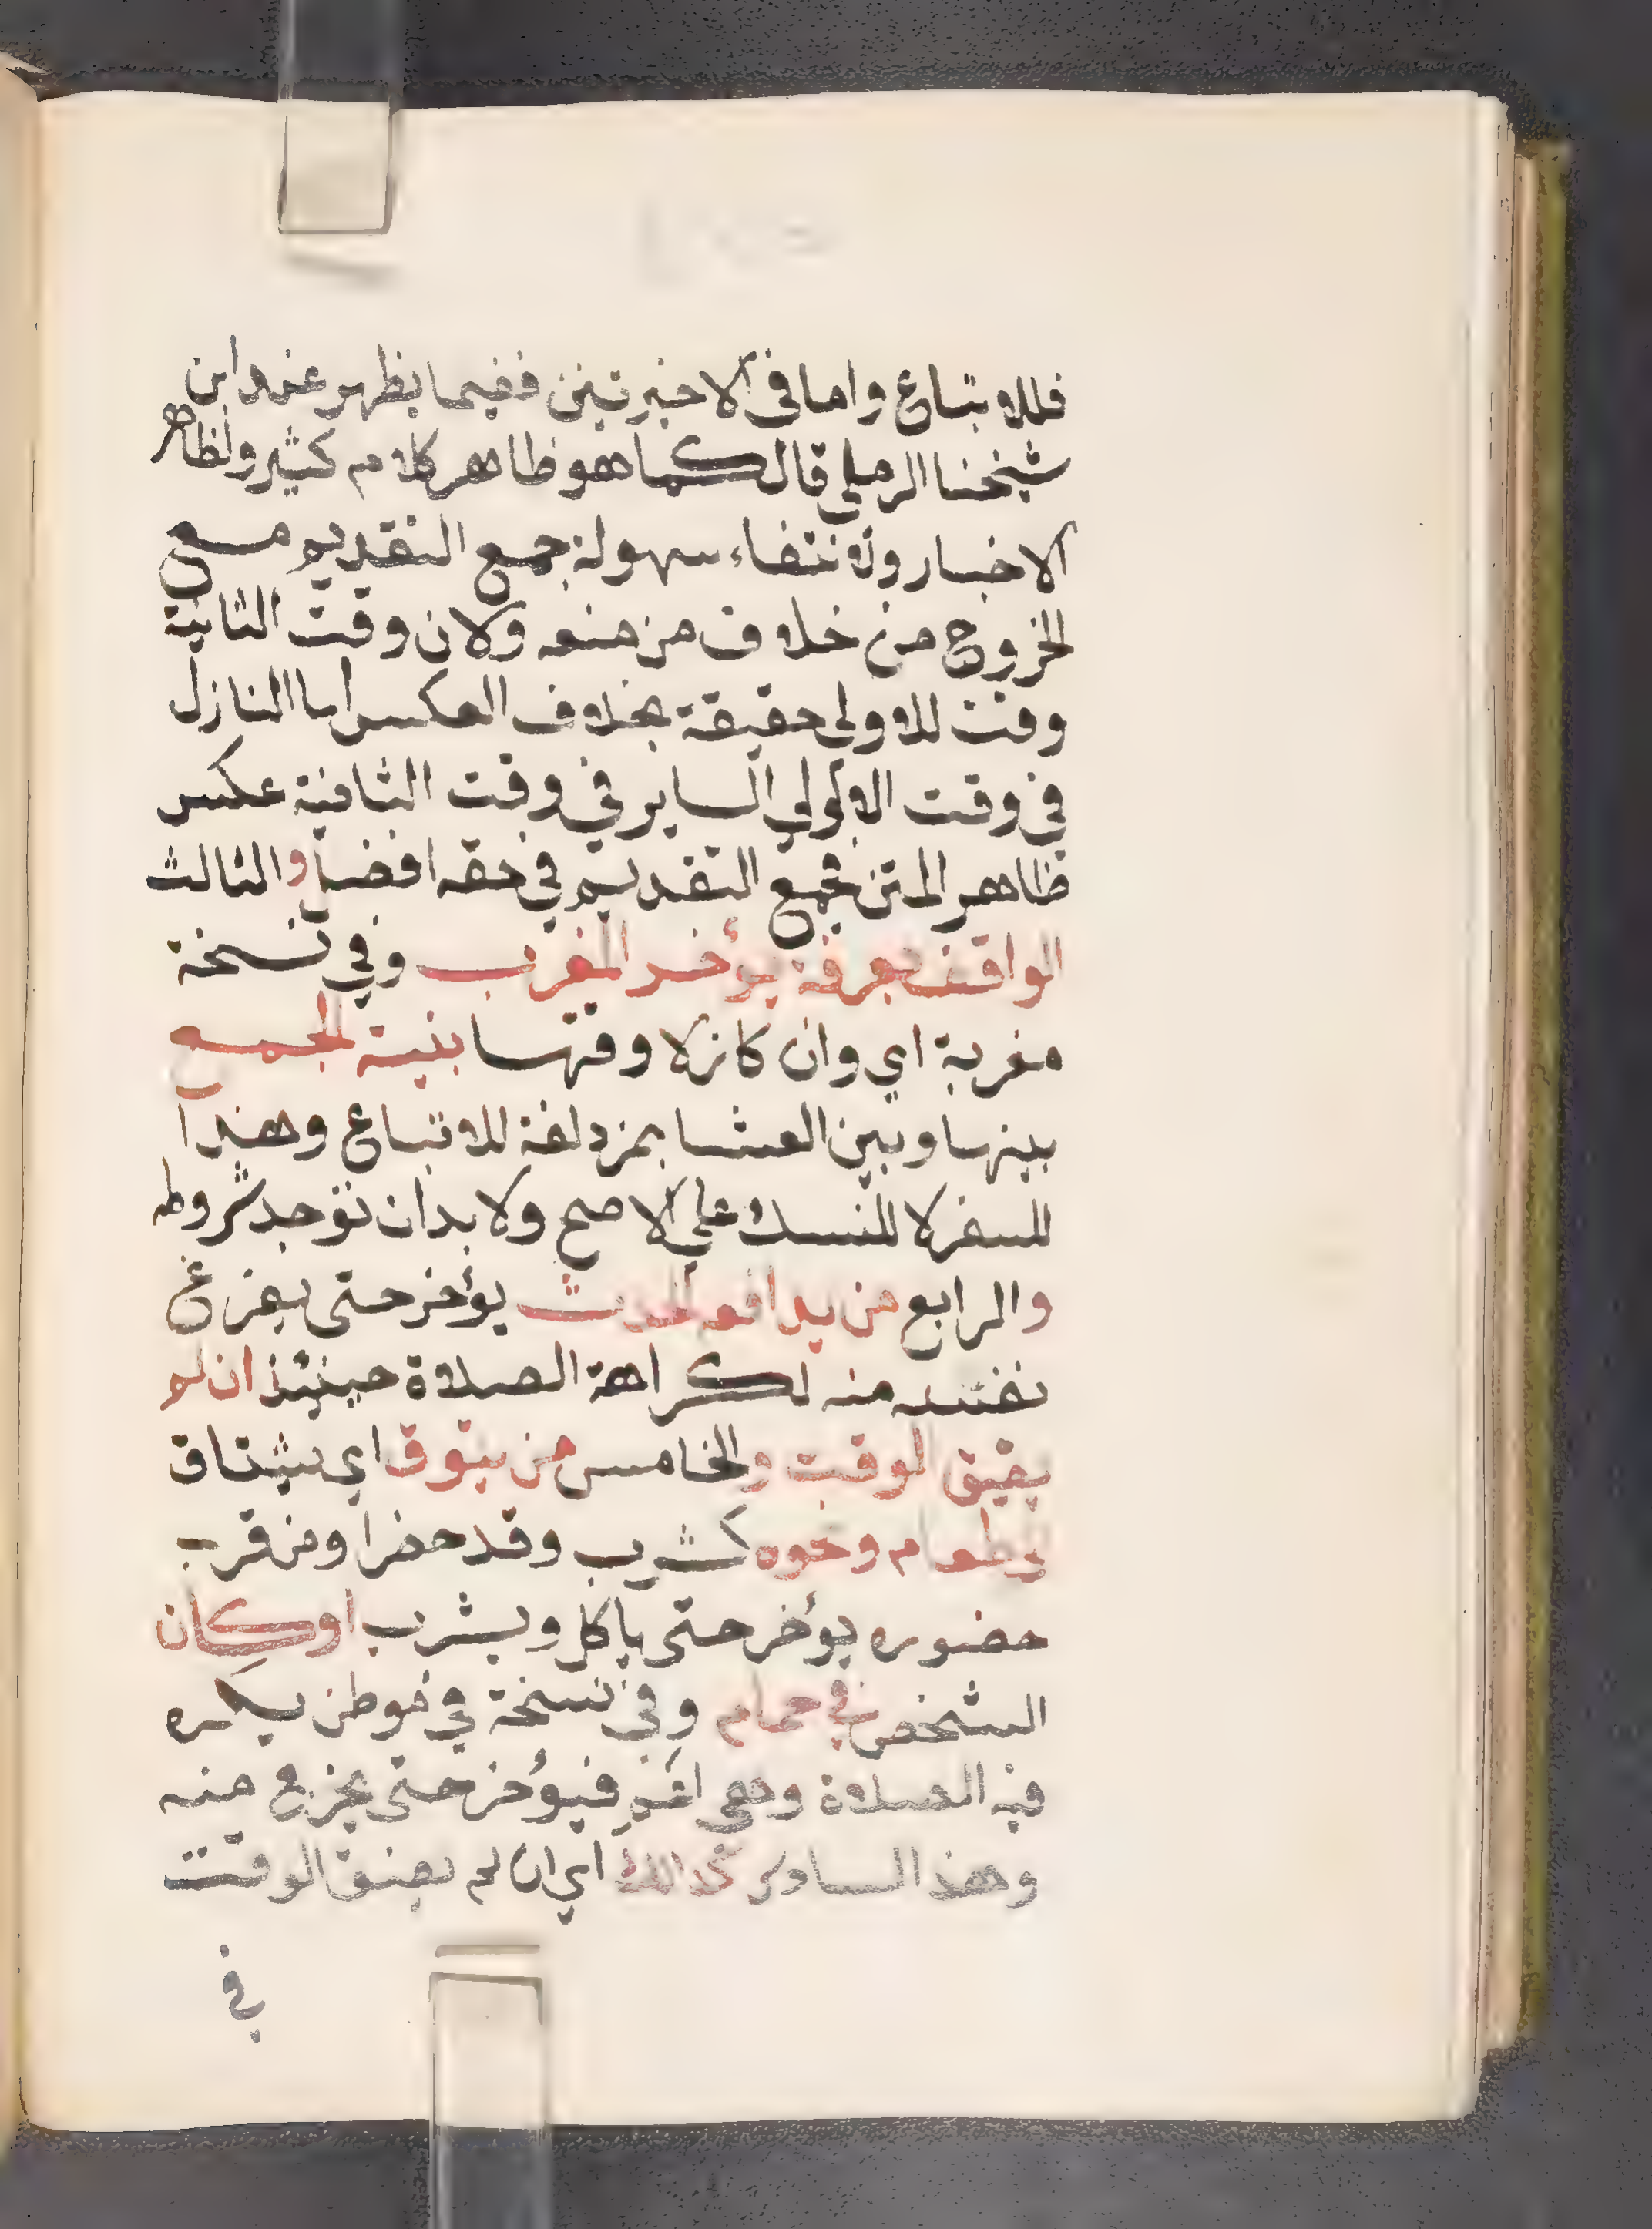 فللاتباع واما في الاخيرتين ففيما يظهر عند ابن
شيخنا الرملي قال كما هو ظاهر كلام كثير ولظاهر
الاخبار ولانتفاء سهولة جمع التقديم مع
الخروج من خلاف من منعه ولان وقت الثانية
وقت للاولى حقيقة بخلاف العكس اما النازل
في وقت الاولى الساير في وقت الثانية عكس
ظاهر المتن فجمع التقديم في حقه افضل والثالث
الواقف بعرفة يؤخر المغرب وفي نسخة
مغربة اي وان كان لا وقتها بنية الجمع
بينها وبين العشا بمزدلفة للاتباع وهذا
للسفر لا للنسك علي الاصح ولا بد ان توجد شروطه
والرابع من يدافع الحدث يؤخر حتى يفرغ
نفسه منه لكراهة الصلاة حينئذ ان لم
يضيق الوقت والخامس من يتوق اي يشتاق
لطعام ونحوه كشرب وقد حضرا ومن قرب
حضوره يؤخر حتى ياكل ويشرب او كان
الشخص في حمام وفي نسخة في موطن يكره
فيه الصلاة وهي اعم فيؤخر حتى يخرج منه
وهذا السادس كذلك اي ان لم يضيق الوقت
في